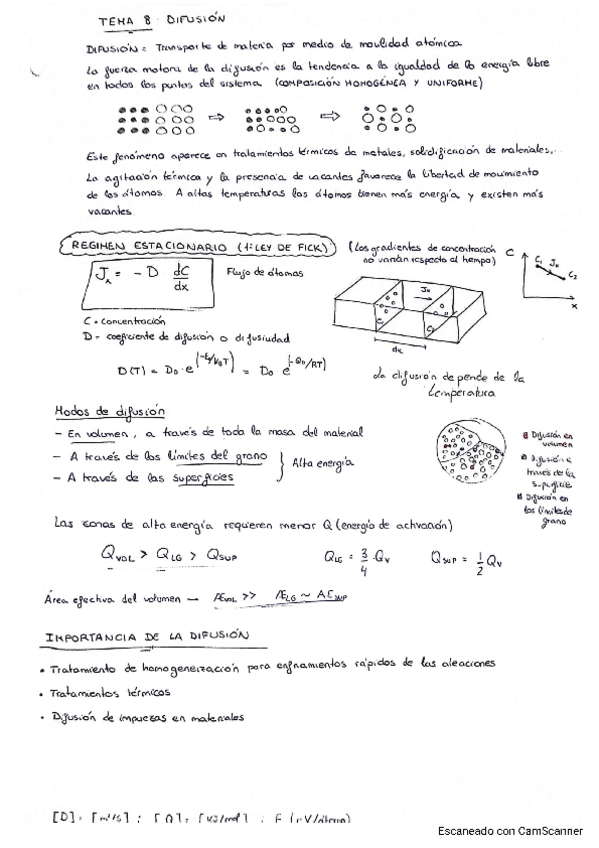 TEMA 8 DIFUSIÓN
DIFUSIÓN = Transporte de materia por medio de movilidad atómica
La fuerza motora de la difusión es la tendencia a la igualdad de la energía libre
en todos los puntos del sistema (COMPOSICIÓN HOMOGÉNEA Y UNIFORME)
Este fenómeno aparece en tratamientos térmicos de metales, solidificación de materiales,..
La agitación térmica y la presencia de vacantes favorece la libertad de movimiento
de los átomos. A altas temperaturas los átomos tienen más energía y existen más
vacantes.
REGIMEN ESTACIONARIO (1ª LEY DE FICK) (Los gradientes de concentración
no varían respecto al tiempo)
C C₁ Jx C₂ x
Jx = - D dC/dx Flujo de átomos
Jx C₁ C₂ dx
C = concentración
D = coeficiente de difusión o difusividad
D(T) = D₀ · e = D₀ e
La difusión depende de la
temperatura
Modos de difusión
- En volumen, a través de toda la masa del material
- A través de los límites del grano
- A través de las superficies
Alta energía
Difusión en
volumen
Difusión a
través de la
superficie
Difusión en
los límites de
grano
Las zonas de alta energía requieren menor Q (energía de activación)
Q_VOL > Q_LG > Q_SUP Q_LG = 3/4 · Q_V Q_SUP = 1/2 Q_V
Área efectiva del volumen → AE_VOL >> AE_LG ~ AE_SUP
IMPORTANCIA DE LA DIFUSIÓN
• Tratamiento de homogeneización para enfriamientos rápidos de las aleaciones
• Tratamientos térmicos
• Difusión de impurezas en materiales
[D] : [m²/s] ;
Escaneado con CamScanner